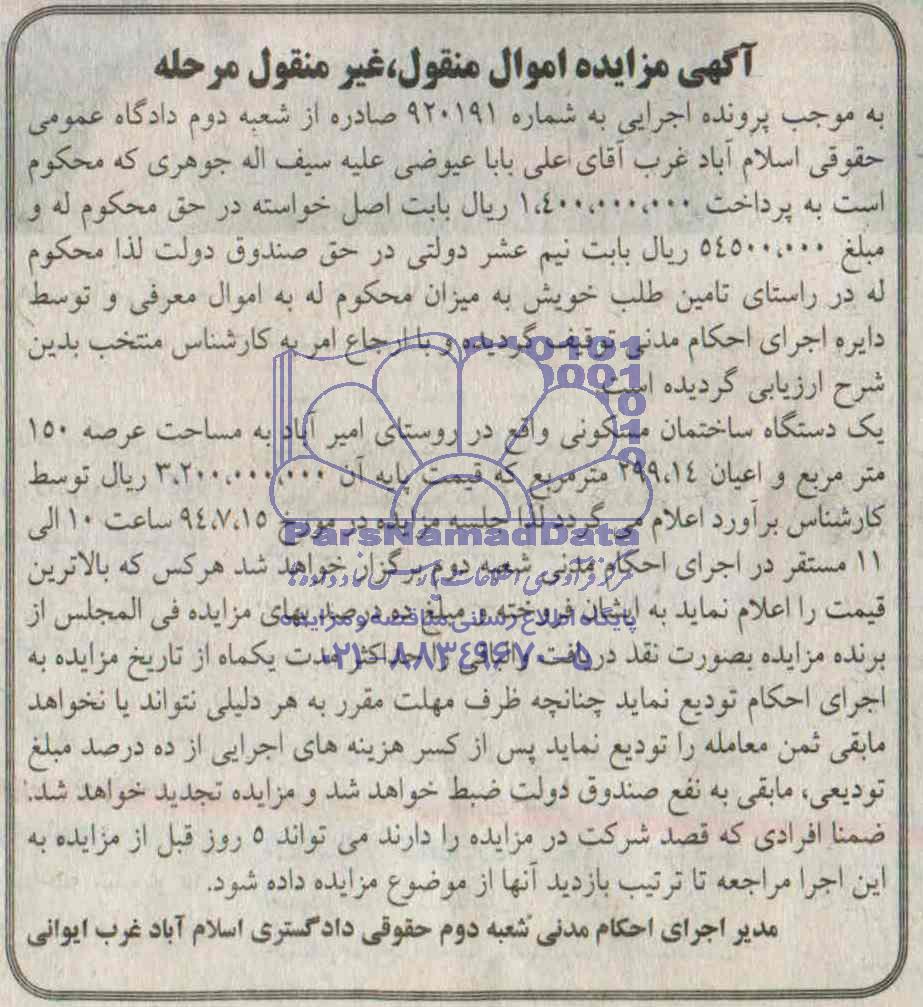 آگهی مزایده اموال منقول،غیر منقول مرحله
به موجب پرونده اجرایی به شماره ۹۲۰۱۹۱ صادره از شعبه دوم دادگاه عمومی
حقوقی اسلام آباد غرب آقای علی بابا عیوضی علیه سیف اله جوهری که محکوم
است به پرداخت ۱،٤۰۰،۰۰۰،۰۰۰ ریال بابت اصل خواسته در حق محکوم له و
مبلغ ٥٤٥۰۰،۰۰۰ ریال بابت نیم عشر دولتی در حق صندوق دولت لذا محکوم
له در راستای تامین طلب خویش به میزان محکوم له به اموال معرفی و توسط
دایره اجرای احکام مدنی توقیف گردیده و با ارجاع امر به کارشناس منتخب بدین
شرح ارزیابی گردیده است.
یک دستگاه ساختمان مسکونی واقع در روستای امیر آباد به مساحت عرصه ۱٥۰
متر مربع و اعیان ۲۹۹،۱٤ مترمربع که قیمت پایه آن ۳،۲۰۰،۰۰۰،۰۰۰ ریال توسط
کارشناس برآورد اعلام می گردد لذا جلسه مزایده در مورخ ۹٤،۷،۱٥ ساعت ۱۰ الی
۱۱ مستقر در اجرای احکام مدنی شعبه دوم برگزار خواهد شد هرکس که بالاترین
قیمت را اعلام نماید به ایشان فروخته و مبلغ ده درصد بهای مزایده فی المجلس از
برنده مزایده بصورت نقد دریافت والباقی را حداکثر مدت یکماه از تاریخ مزایده به
اجرای احکام تودیع نماید چنانچه ظرف مهلت مقرر به هر دلیلی نتواند یا نخواهد
مابقی ثمن معامله را تودیع نماید پس از کسر هزینه های اجرایی از ده درصد مبلغ
تودیعی، مابقی به نفع صندوق دولت ضبط خواهد شد و مزایده تجدید خواهد شد.
ضمنا افرادی که قصد شرکت در مزایده را دارند می تواند ٥ روز قبل از مزایده به
این اجرا مراجعه تا ترتیب بازدید آنها از موضوع مزایده داده شود.
مدیر اجرای احکام مدنی شعبه دوم حقوقی دادگستری اسلام آباد غرب ایوانی
ParsNamadData
پایگاه اطلاع رسانی مناقصه و مزایده
۰۲۱-۸۸۳٤۹٦۷۰-٥